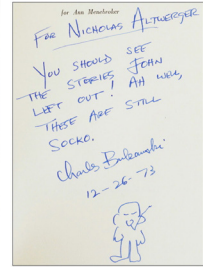 for Ann Menebroker
FOR NICHOLAS ALTWERGER
YOU SHOULD SEE
THE STORIES JOHN
LEFT OUT! AH WELL,
THESE ARE STILL
SOCKO.
Charles Bukowski
12-26-73